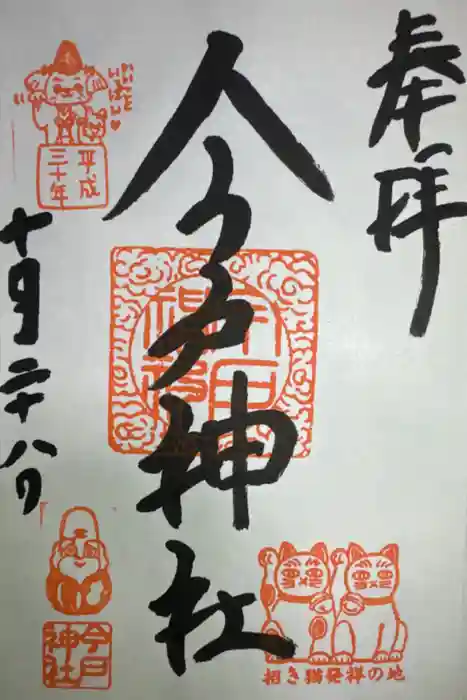 奉拝
今戸神社
平成
三十年
十月二十八日
今戸
神社
招き猫発祥の地